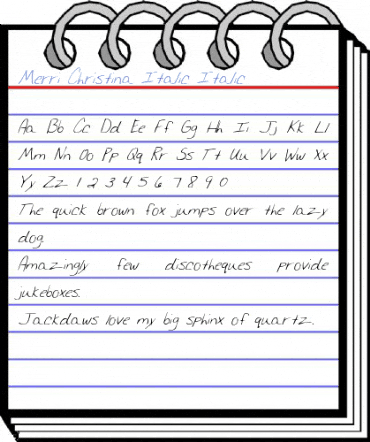 Merri Christina Italic Italic
Aa Bb Cc Dd Ee Ff Gg Hh Ii Jj Kk Ll
Mm Nn Oo Pp Qq Rr Ss Tt Uu Vv Ww Xx
Yy Zz 1 2 3 4 5 6 7 8 9 0
The quick brown fox jumps over the lazy
dog.
Amazingly few discotheques provide
jukeboxes.
Jackdaws love my big sphinx of quartz.